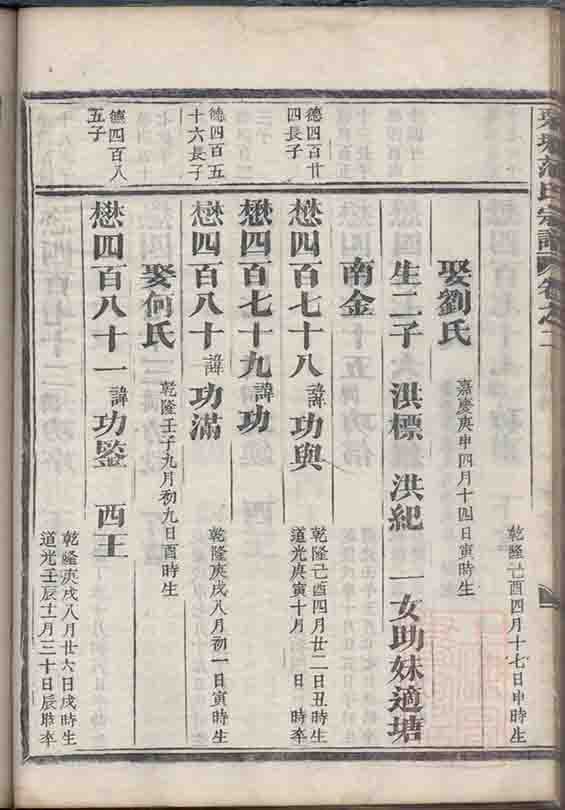 氏宗譜 卷之二
乾隆己酉四月十七日申時生
娶劉氏 嘉慶庚申四月十四日寅時生
生二子 洪標 洪紀 一女助妹適塘
南金
德四百廿四長子
懋四百七十八 諱 功與 乾隆己酉四月廿二日丑時生
道光庚寅十月 日 時卒
懋四百七十九 諱 功
德四百五十六長子
懋四百八十 諱 功滿 乾隆庚戌八月初一日寅時生
娶何氏 乾隆壬子九月初九日酉時生
德四百八五子
懋四百八十一 諱 功鑒 西王 乾隆庚戌八月廿六日戌時生
道光壬辰十一月三十日辰時卒